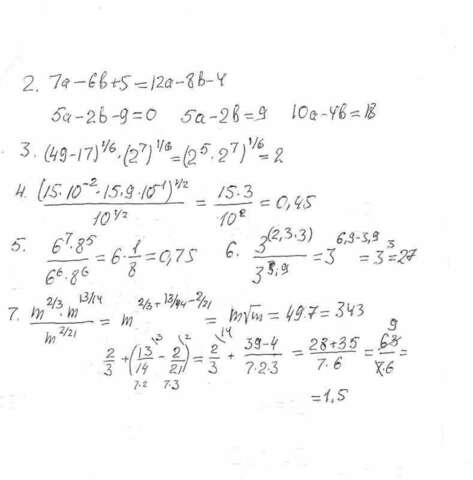 2. 7a-6b+5=12a-8b-4
5a-2b-9=0 5a-2b=9 10a-4b=18
3. (49-17)^1/6·(2^7)^1/6=(2^5·2^7)^1/6=2
4. (15·10^-2·15·9·10^-1)^1/2 / 10^1/2 = 15·3 / 10^2 = 0,45
5. 6^7·8^5 / 6^6·8^6 = 6·1/8 = 0,75 6. 3^(2,3·3) / 3^3,9 = 3^6,9-3,9 = 3^3=27
7. m^2/3·m^13/14 / m^2/21 = m^2/3+13/14-2/21 = m√m = 49·7=343
2/3+(13/14 \3 - 2/21 \2)=2/3 \14 + 39-4 / 7·2·3 = 28+35 / 7·6 = 63 9 / 7·6 =
7·2 7·3
=1.5